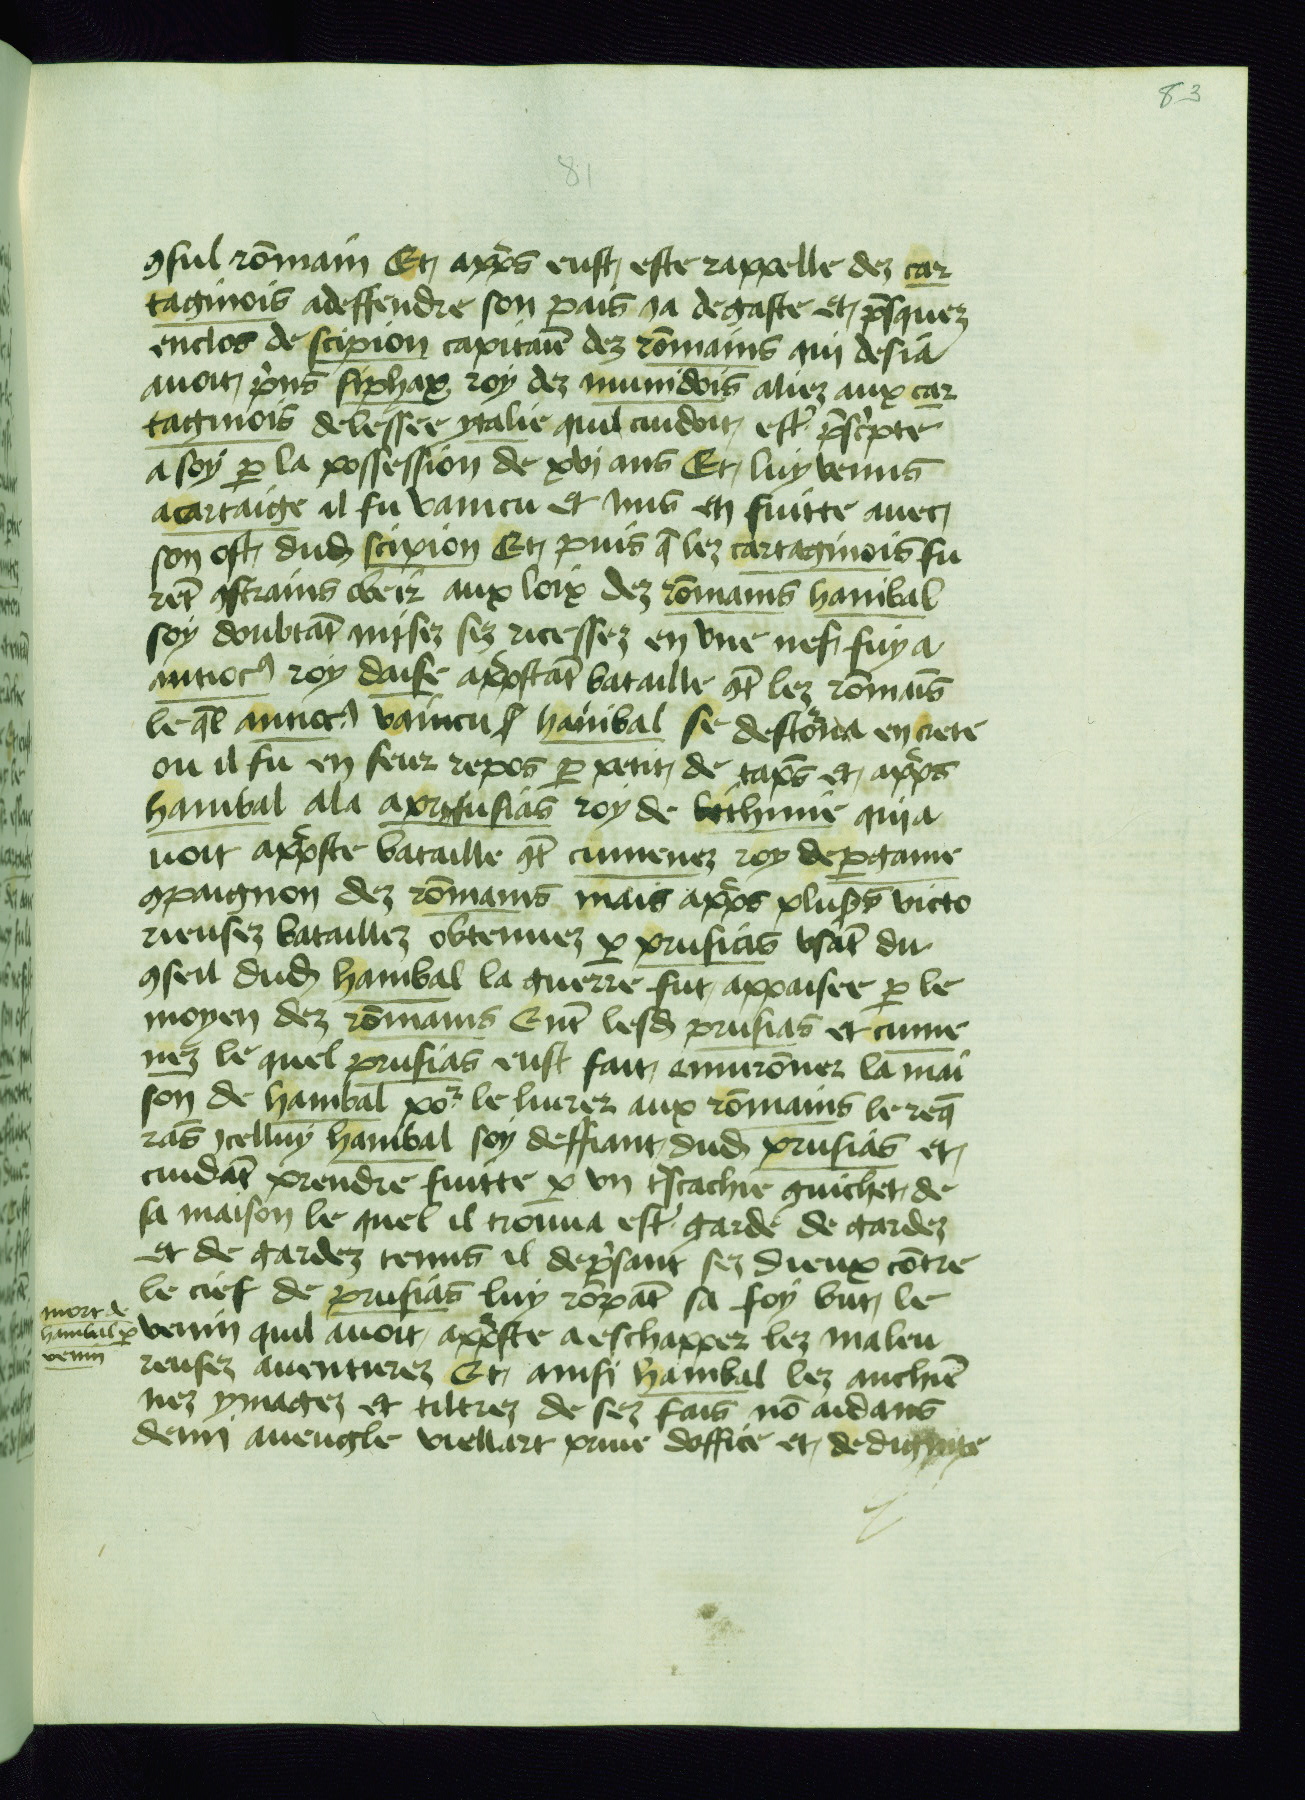 83
81
ꝯsful rōmain Et app̄s eust este rappelle dez car
taginois adeffendre son pais ja degaste et p̄squez
enclos de scipion capitaīe dez rōmains qui desia
auoit p̄ns siphax roy dez munidois aliez aux car
taginois delessee ytalie quil cuidoit est̄ p̄scpte
a soy ꝑ la possession de xvi ans Et luy venus
acartaige il fu vaincu et mis en fuitte auec
son ost dud scipion Et puis q̄ lez cartaginois fu
rēt ꝯstrains obeir aux loix dez rōmains hanibal
soy doubtāt misez sez ricessez en vne nef fuy a
antiocꝰ roy daise app̄stāt bataille ꝯt̄ lez rōmaīs
le q̄l antiocꝰ vaincu hanibal se destōrna en crete
ou il fu en seur repos ꝑ petit de tāps et app̄s
hanibal ala a prusias roy de bithinie qui a
uoit app̄ste bataille ꝯt̄ eumenez roy de ꝑgame
ꝯpaignon dez rōmains mais app̄s plus̄s victo
rieusez bataillez obtenuez ꝑ prusias vsāt du
ꝯseil dud hanibal la guerre fut appaisee ꝑ le
moyen dez rōmains Ent̄ lesd prusias et eume
nez le quel prusias eust fait enuirōner la mai
son de hanibal po᷑ le liurer aux rōmains le req̄
rās ycelluy hanibal soy deffiant dud prusias et
cuidāt prendre fuitte ꝑ vn t̄scachie guichet de
sa maison le quel il trouua est̄ garde de gardez
et de gardez tenus il dep̄sant sez dieux cōtre
le cief de prusias luy rōpāt sa foy but le
venin quil auoit app̄ste a eschapper lez maleu
reusez auenturez Et ainsi hanibal lez anchiē
nez ymagez et tiltrez de sez fais nō aidans
demi aueugle viellart priue doffice et de dignite
mort de
hanibal ꝑ
venin